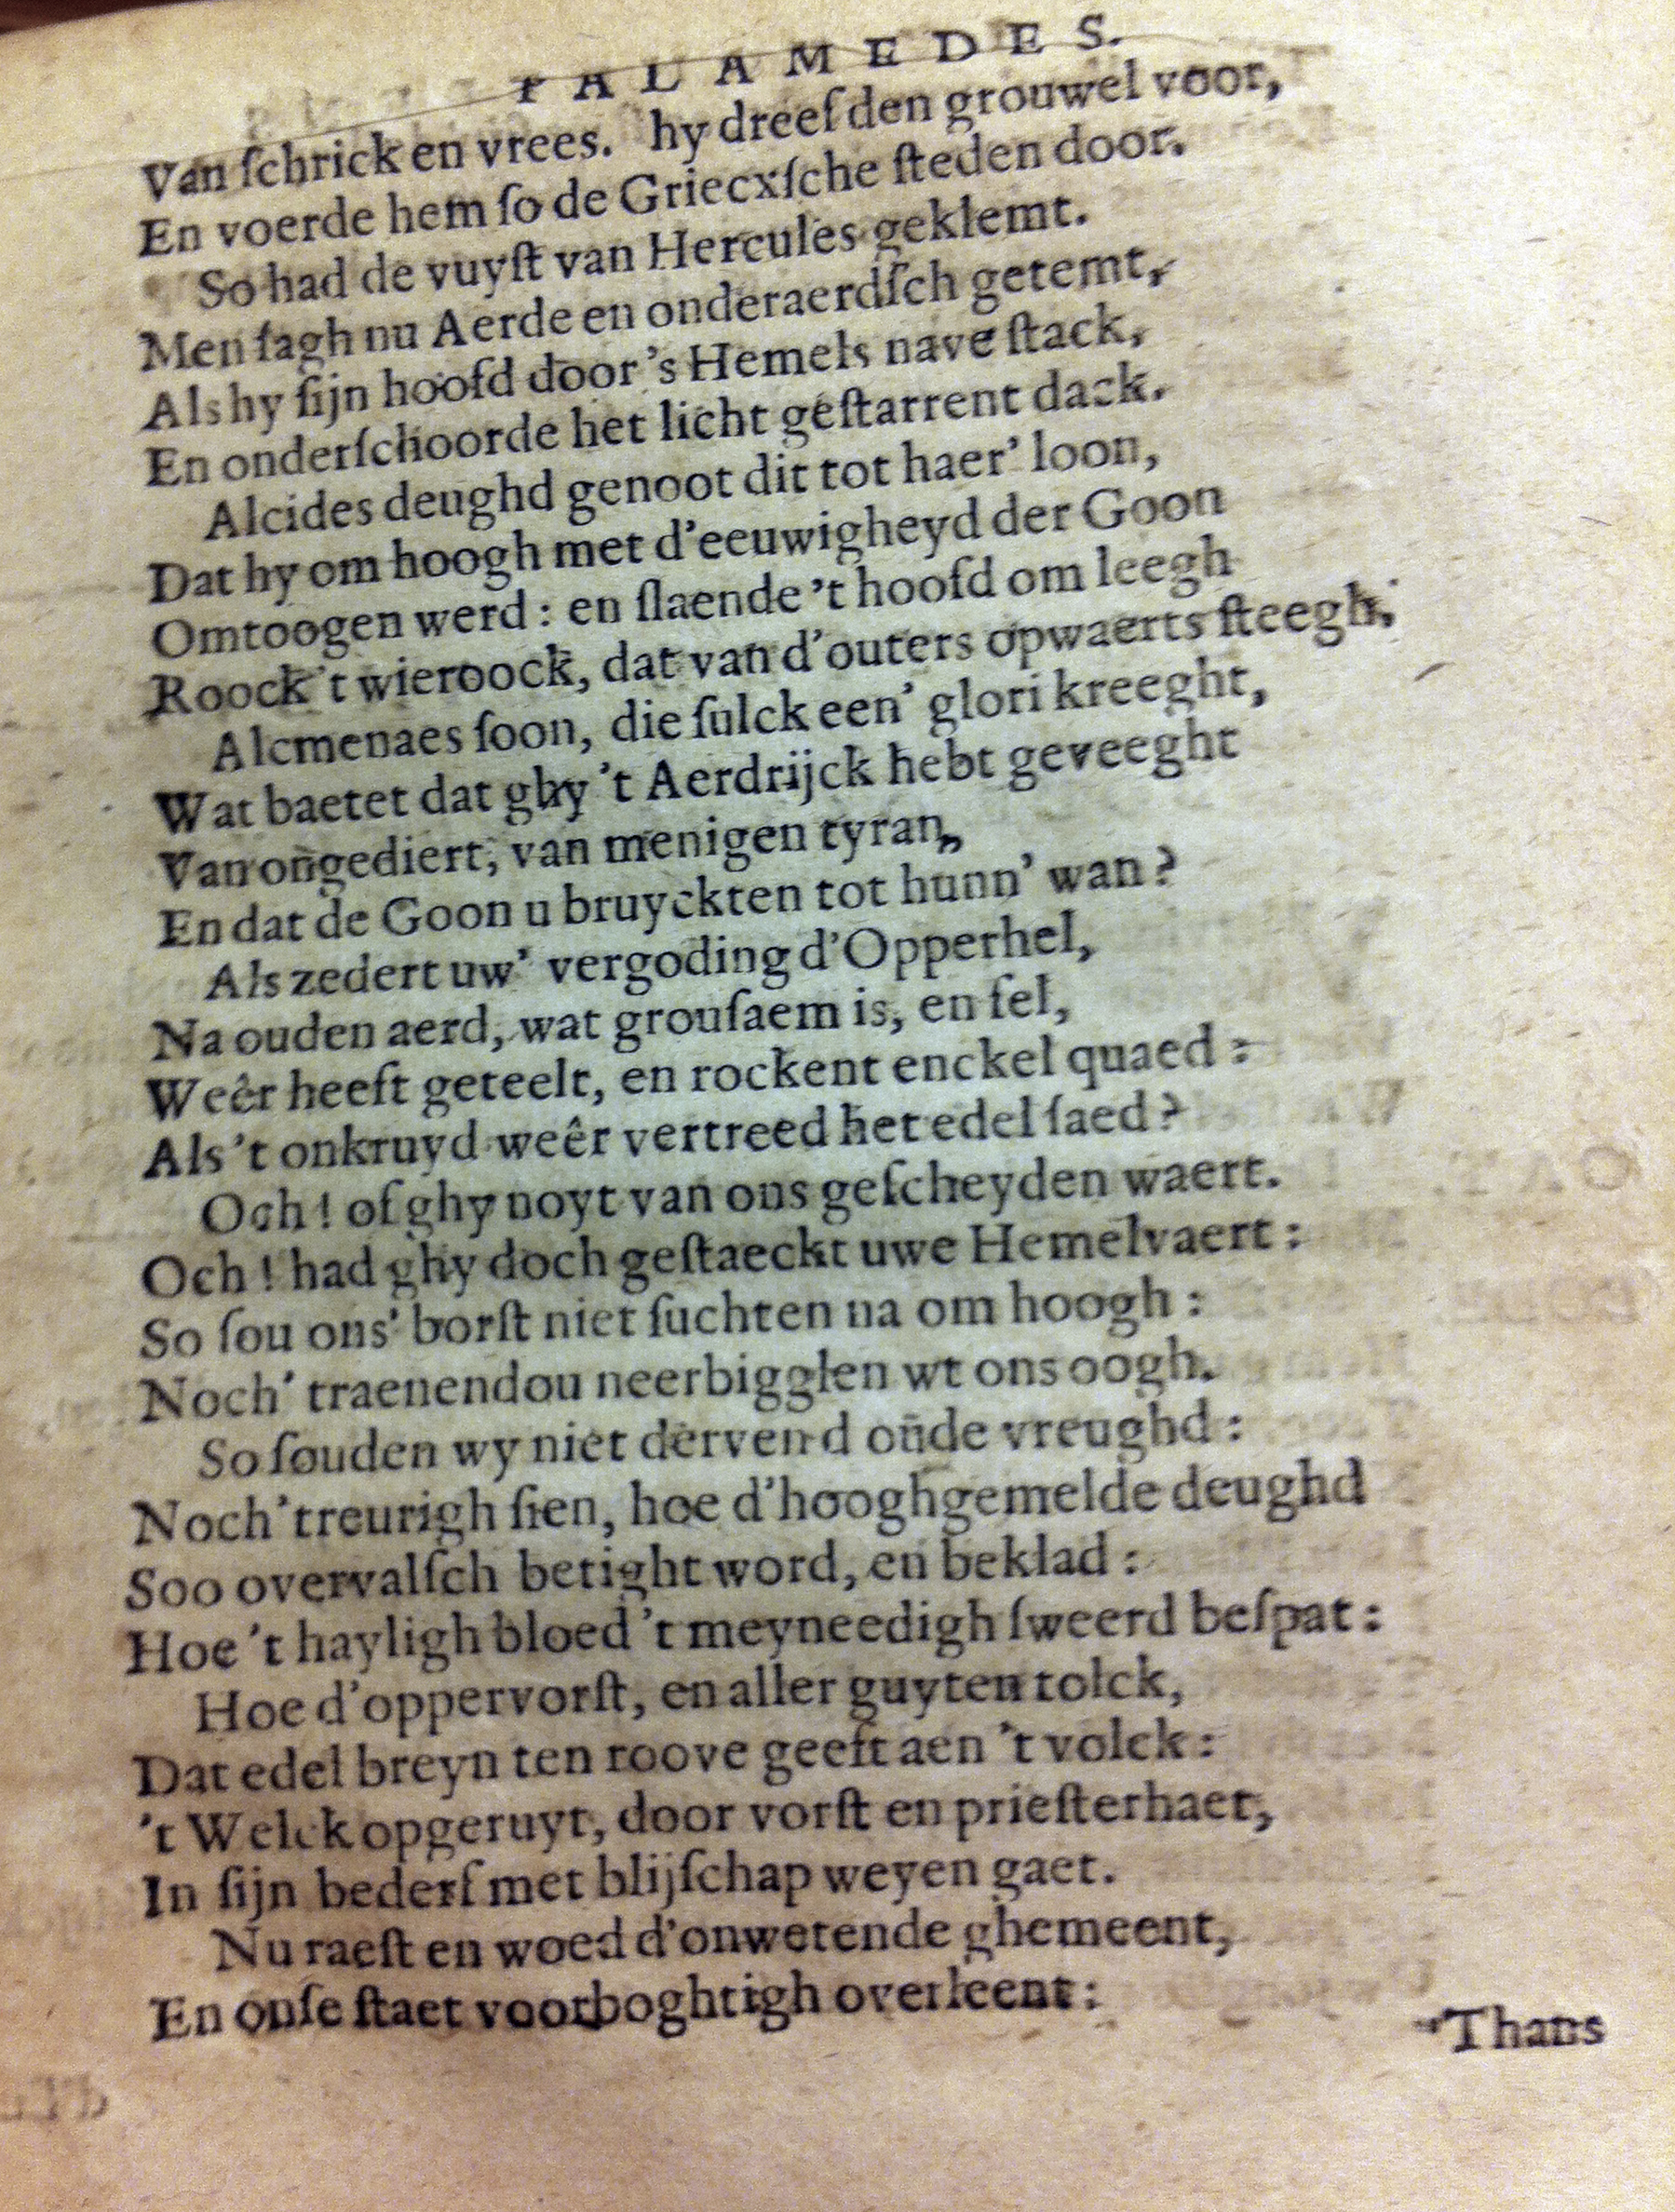 PALAMEDES.
Van ſchrick en vrees. hy dreef den grouwel voor,
En voerde hem ſo de Griecxſche ſteden door.
So had de vuyſt van Hercules geklemt.
Men ſagh nu Aerde en onderaerdſch getemt,
Als hy ſijn hoofd door 's Hemels nave ſtack,
En onderſchoorde het licht geſtarrent dack.
Alcides deughd genoot dit tot haer' loon,
Dat hy om hoogh met d'eeuwigheyd der Goon
Omtoogen werd: en ſlaende 't hoofd om leegh
Roock 't wieroock, dat van d'outers opwaerts ſteegh.
Alcmenaes ſoon, die ſulck een' glori kreeght,
Wat baetet dat ghy 't Aerdrijck hebt geveeght
Van ongediert, van menigen tyran,
En dat de Goon u bruyckten tot hunn' wan?
Als zedert uw' vergoding d'Opperhel,
Na ouden aerd, wat grouſaem is, en fel,
Weêr heeft geteelt, en rockent enckel quaed:
Als 't onkruyd weêr vertreed het edel ſaed?
Och! of ghy noyt van ons geſcheyden waert.
Och! had ghy doch geſtaeckt uwe Hemelvaert:
So ſou ons' borſt niet ſuchten na om hoogh:
Noch' traenendou neerbigglen wt ons oogh.
So ſouden wy niet dervend oude vreughd:
Noch' treurigh ſien, hoe d'hooghgemelde deughd
Soo overvalſch betight word, en beklad:
Hoe 't hayligh bloed 't meyneedigh ſweerd beſpat:
Hoe d'oppervorſt, en aller guyten tolck,
Dat edel breyn ten roove geeft aen 't volck:
't Welck opgeruyt, door vorſt en prieſterhaet,
In ſijn bederf met blijſchap weyen gaet.
Nu raeſt en woed d'onwetende ghemeent,
En onſe ſtaet voorboghtigh overleent:
Thans